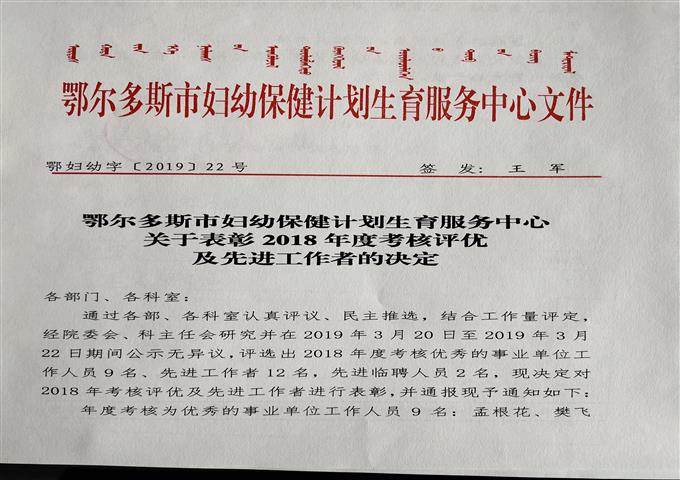 鄂尔多斯市妇幼保健计划生育服务中心文件
鄂妇幼字〔2019〕22号 签发：王军
鄂尔多斯市妇幼保健计划生育服务中心
关于表彰2018年度考核评优
及先进工作者的决定
各部门、各科室：
通过各部、各科室认真评议、民主推选，结合工作量评定，
经院委会、科主任会研究并在2019年3月20日至2019年3月
22日期间公示无异议，评选出2018年度考核优秀的事业单位工
作人员9名、先进工作者12名，先进临聘人员2名，现决定对
2018年考核评优及先进工作者进行表彰，并通报现予通知如下：
年度考核为优秀的事业单位工作人员9名：孟根花、樊飞